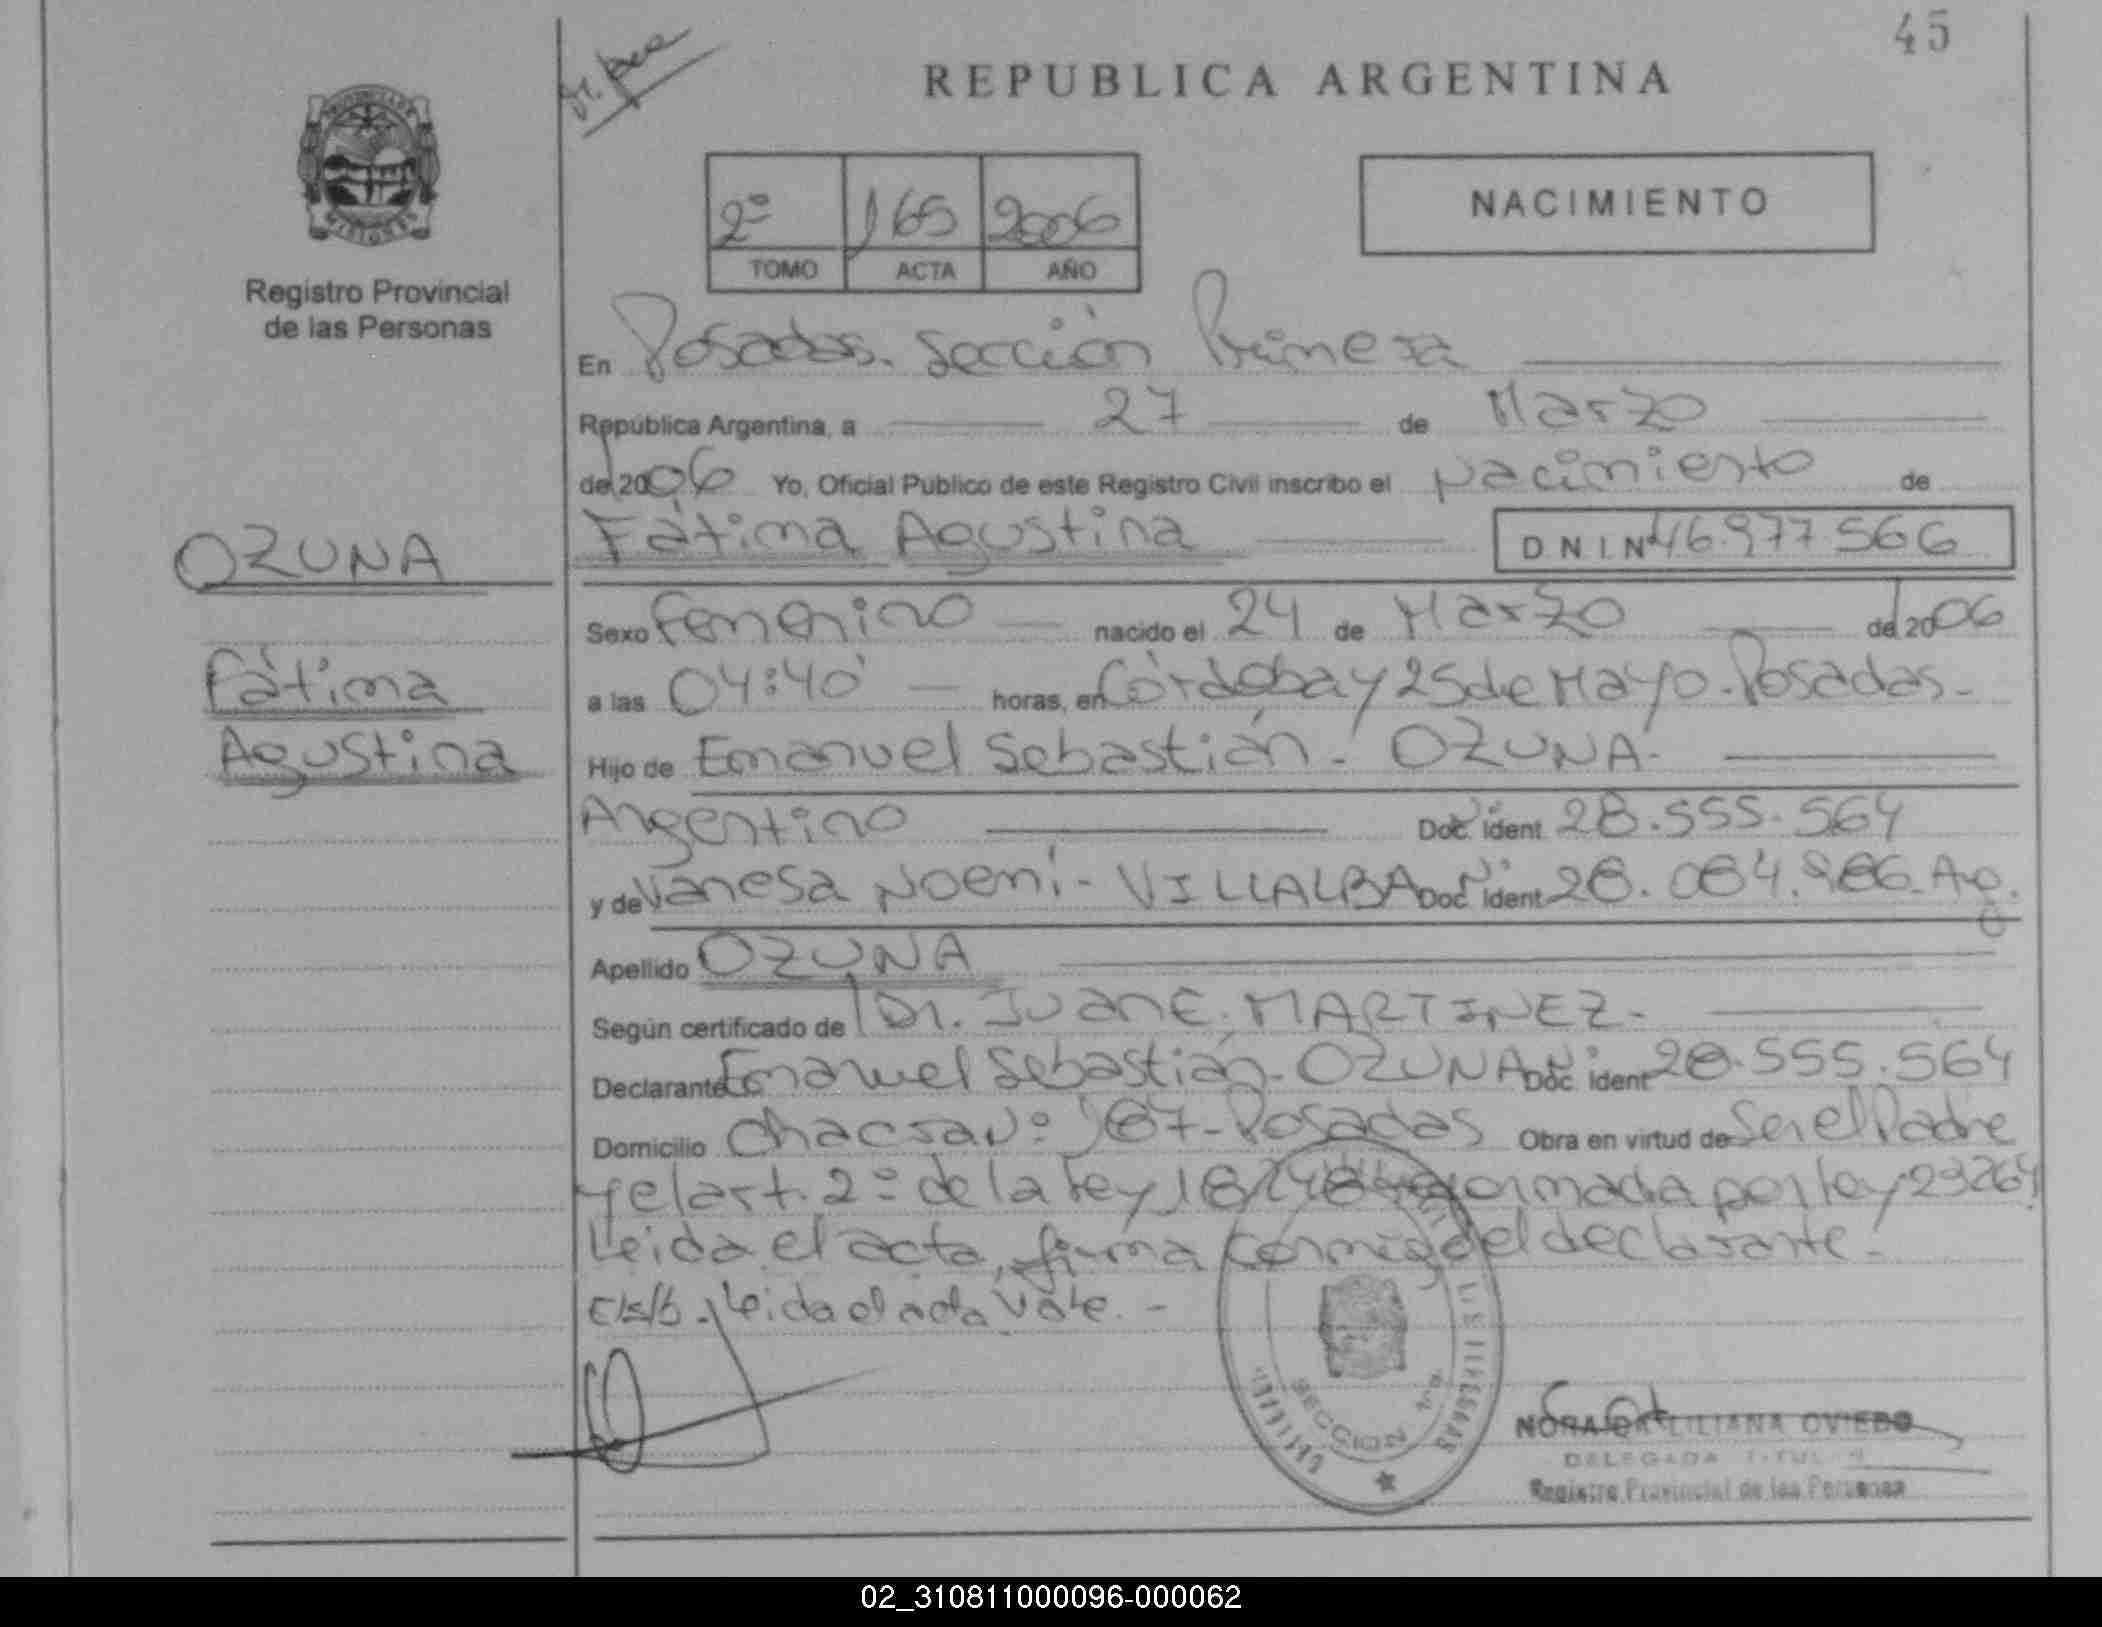 45
REPUBLICA ARGENTINA
NACIMIENTO
2º 165 2006
TOMO ACTA AÑO
Registro Provincial
de las Personas
En Posadas. Sección Primera
República Argentina, a 27 de Marzo
de 2006 Yo, Oficial Público de este Registro Civil inscribo el Nacimiento de
Fátima Agustina DNI Nº 46.977566
OZUNA
Fátima
Agustina
Sexo Femenino nacido el 24 de Marzo de 2006
a las 04:40' horas, en Córdoba y 25 de Mayo. Posadas.
Hijo de Emanuel Sebastián - OZUNA.
Argentino Doc. ident 28.555.564
y de Vanesa Noemí - VILLALBA Doc. ident 28.084.986. Arg.
Apellido OZUNA
Según certificado de Dr. Juan E. MARTINEZ.
Declarante Emanuel Sebastián - OZUNA Doc. ident 28.555.564
Domicilio Chacra Nº 187 - Posadas Obra en virtud de Ser el Padre
y el art. 2º de la Ley 18248 reformada por ley 23264
Leida el acta, firma conmigo el declarante.
Leida el acta Vale. -
SECCION 1ra
NORA LILIANA OVIEDO
DELEGADA TITULAR
Registro Provincial de las Personas
02_310811000096-000062